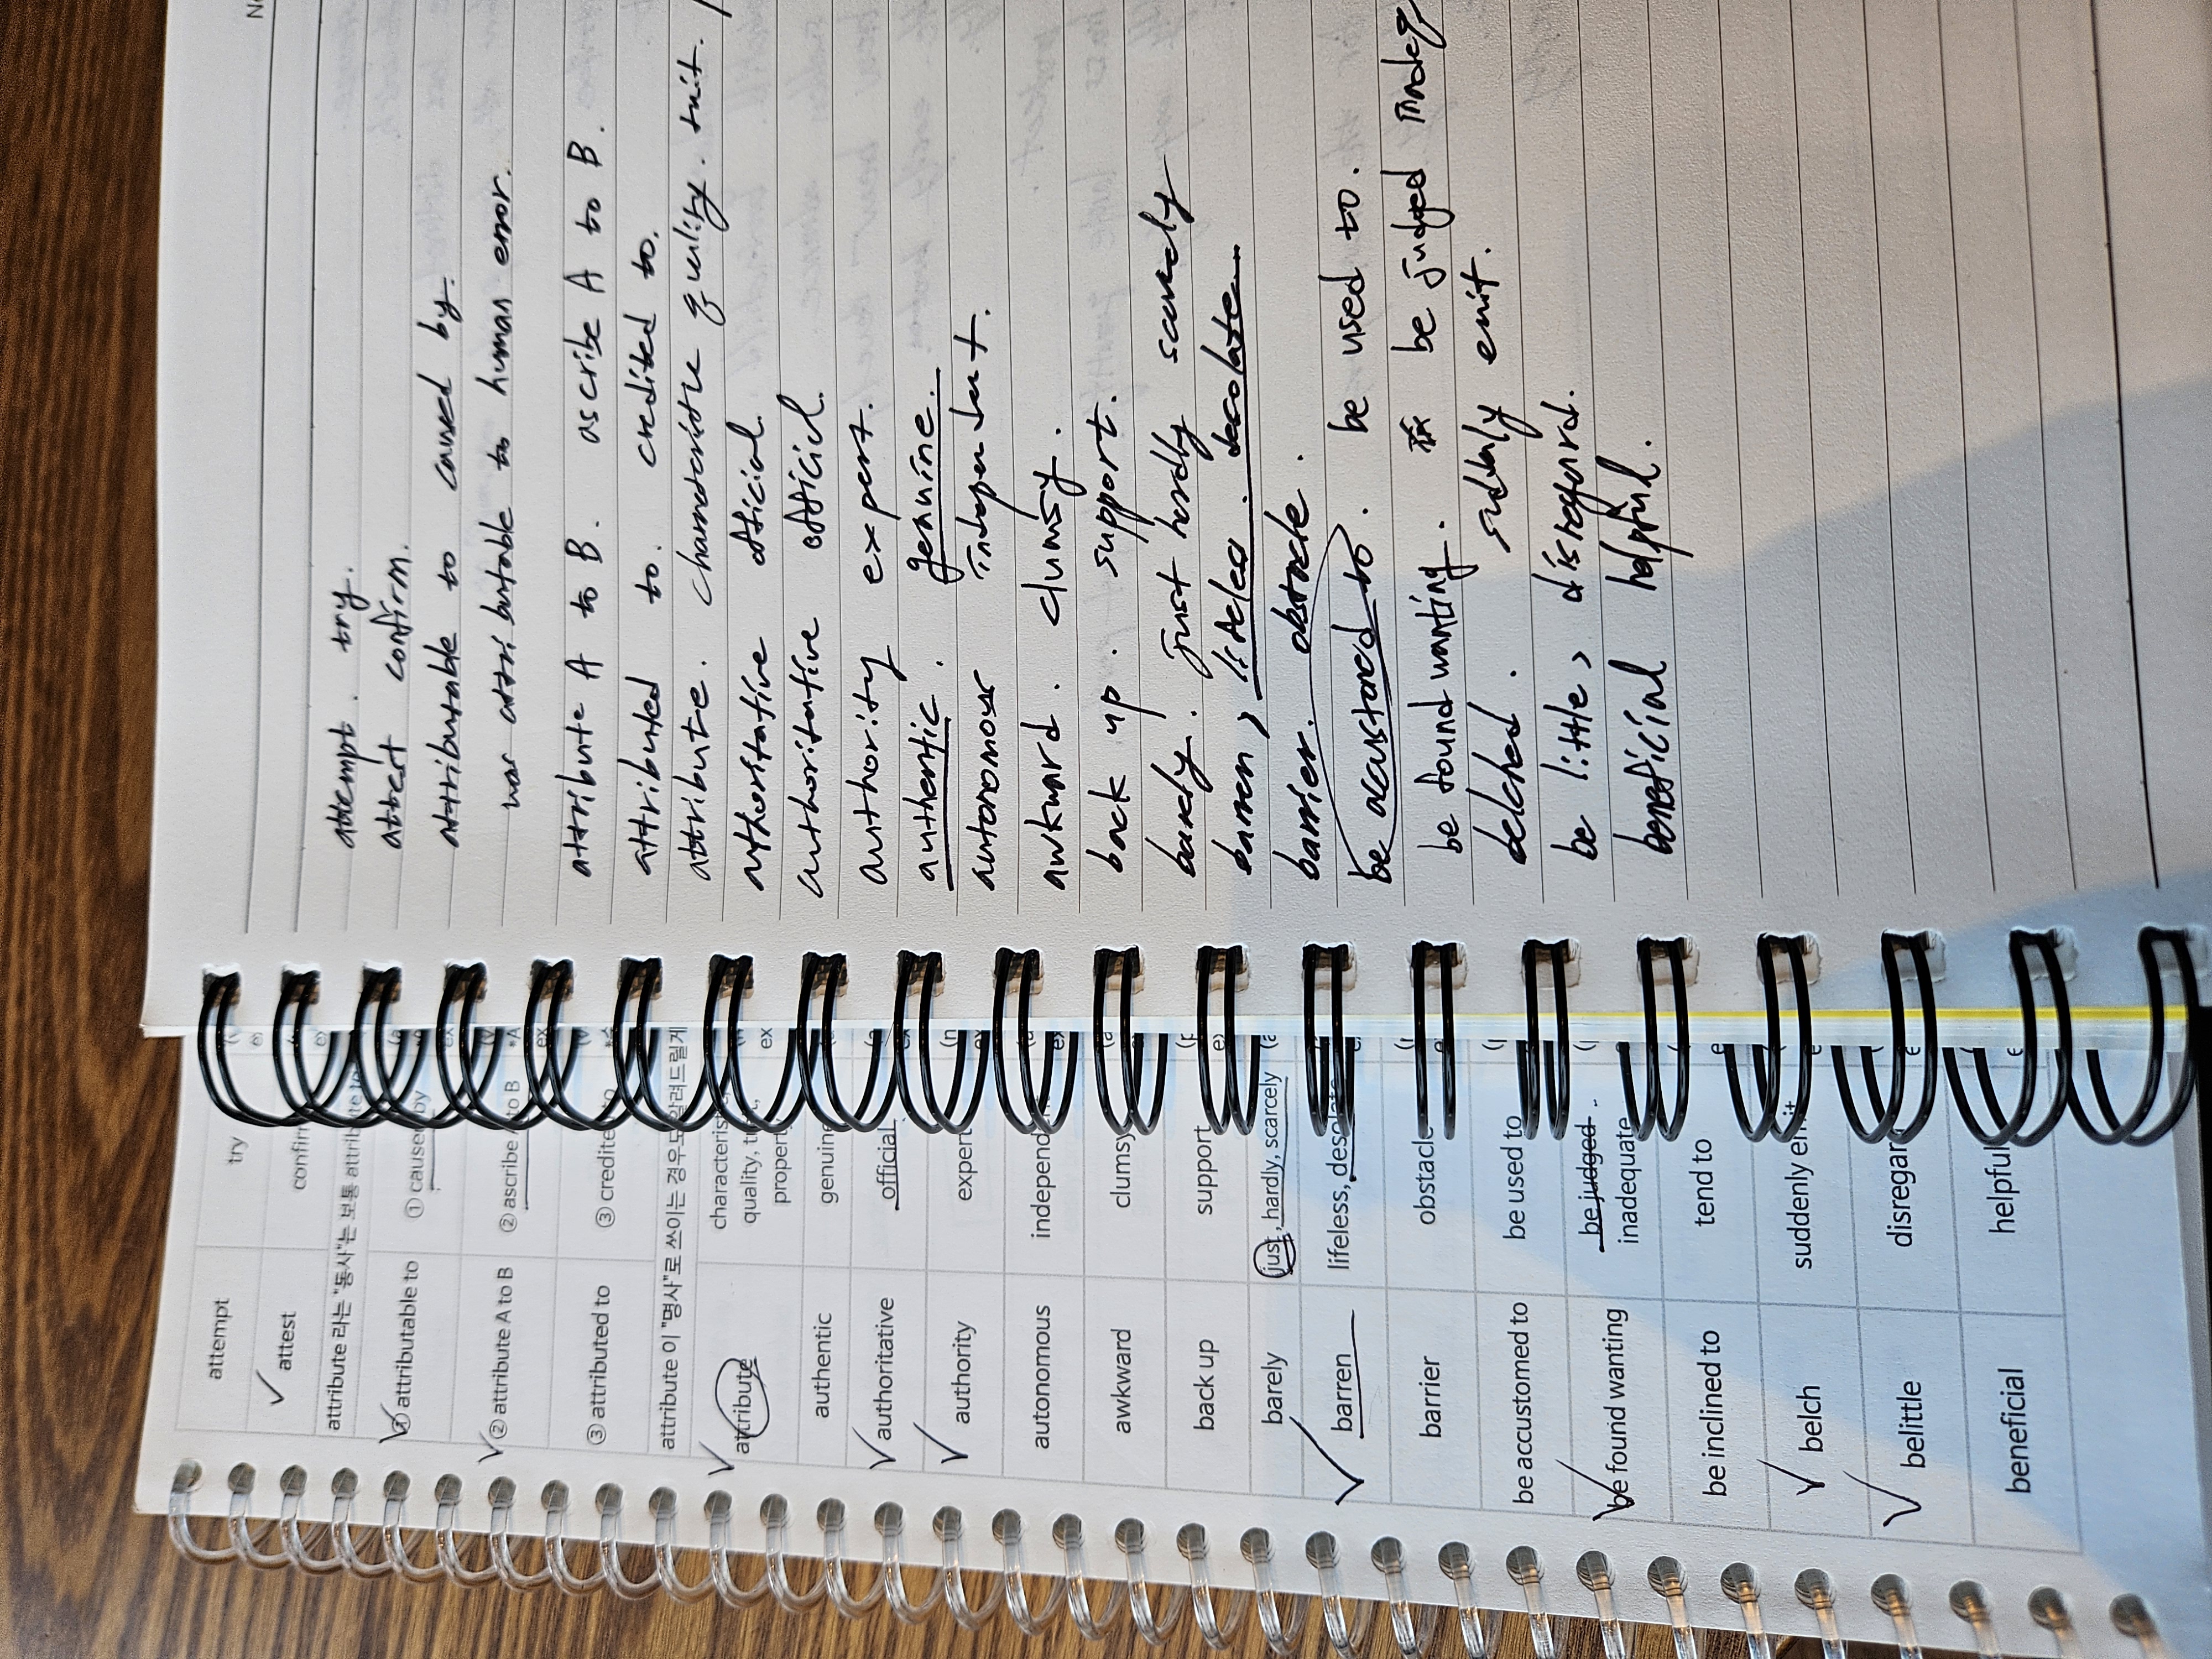 attempt try
attest confirm
attribute 라는 "동사"는 보통 attribute to
① attributable to ① caused by
② attribute A to B ② ascribe A to B
③ attributed to ③ credited to
attribute 이 "명사"로 쓰이는 경우도 알려드릴게
attribute characteristic,
quality, trait,
property
authentic genuine
authoritative official
authority expert
autonomous independent
awkward clumsy
back up support
barely just, hardly, scarcely
barren lifeless, desolate
barrier obstacle
be accustomed to be used to
be found wanting be judged
inadequate
be inclined to tend to
belch suddenly emit
belittle disregard
beneficial helpful
attempt. try.
attect confirm.
attributable to caused by.
was attributable to human error.
attribute A to B. ascribe A to B.
attributed to. credited to.
attribute. quality.
authoritative official
authoritative official.
authority expert.
authentic. genuine.
autonomous
awkward. clumsy.
back up. support.
barely. just hardly scarcely
barren, desolate
barrier. obstacle.
be accustomed to. be used to.
be found wanting. be judged
emit.
be little, disregard.
beneficial helpful.